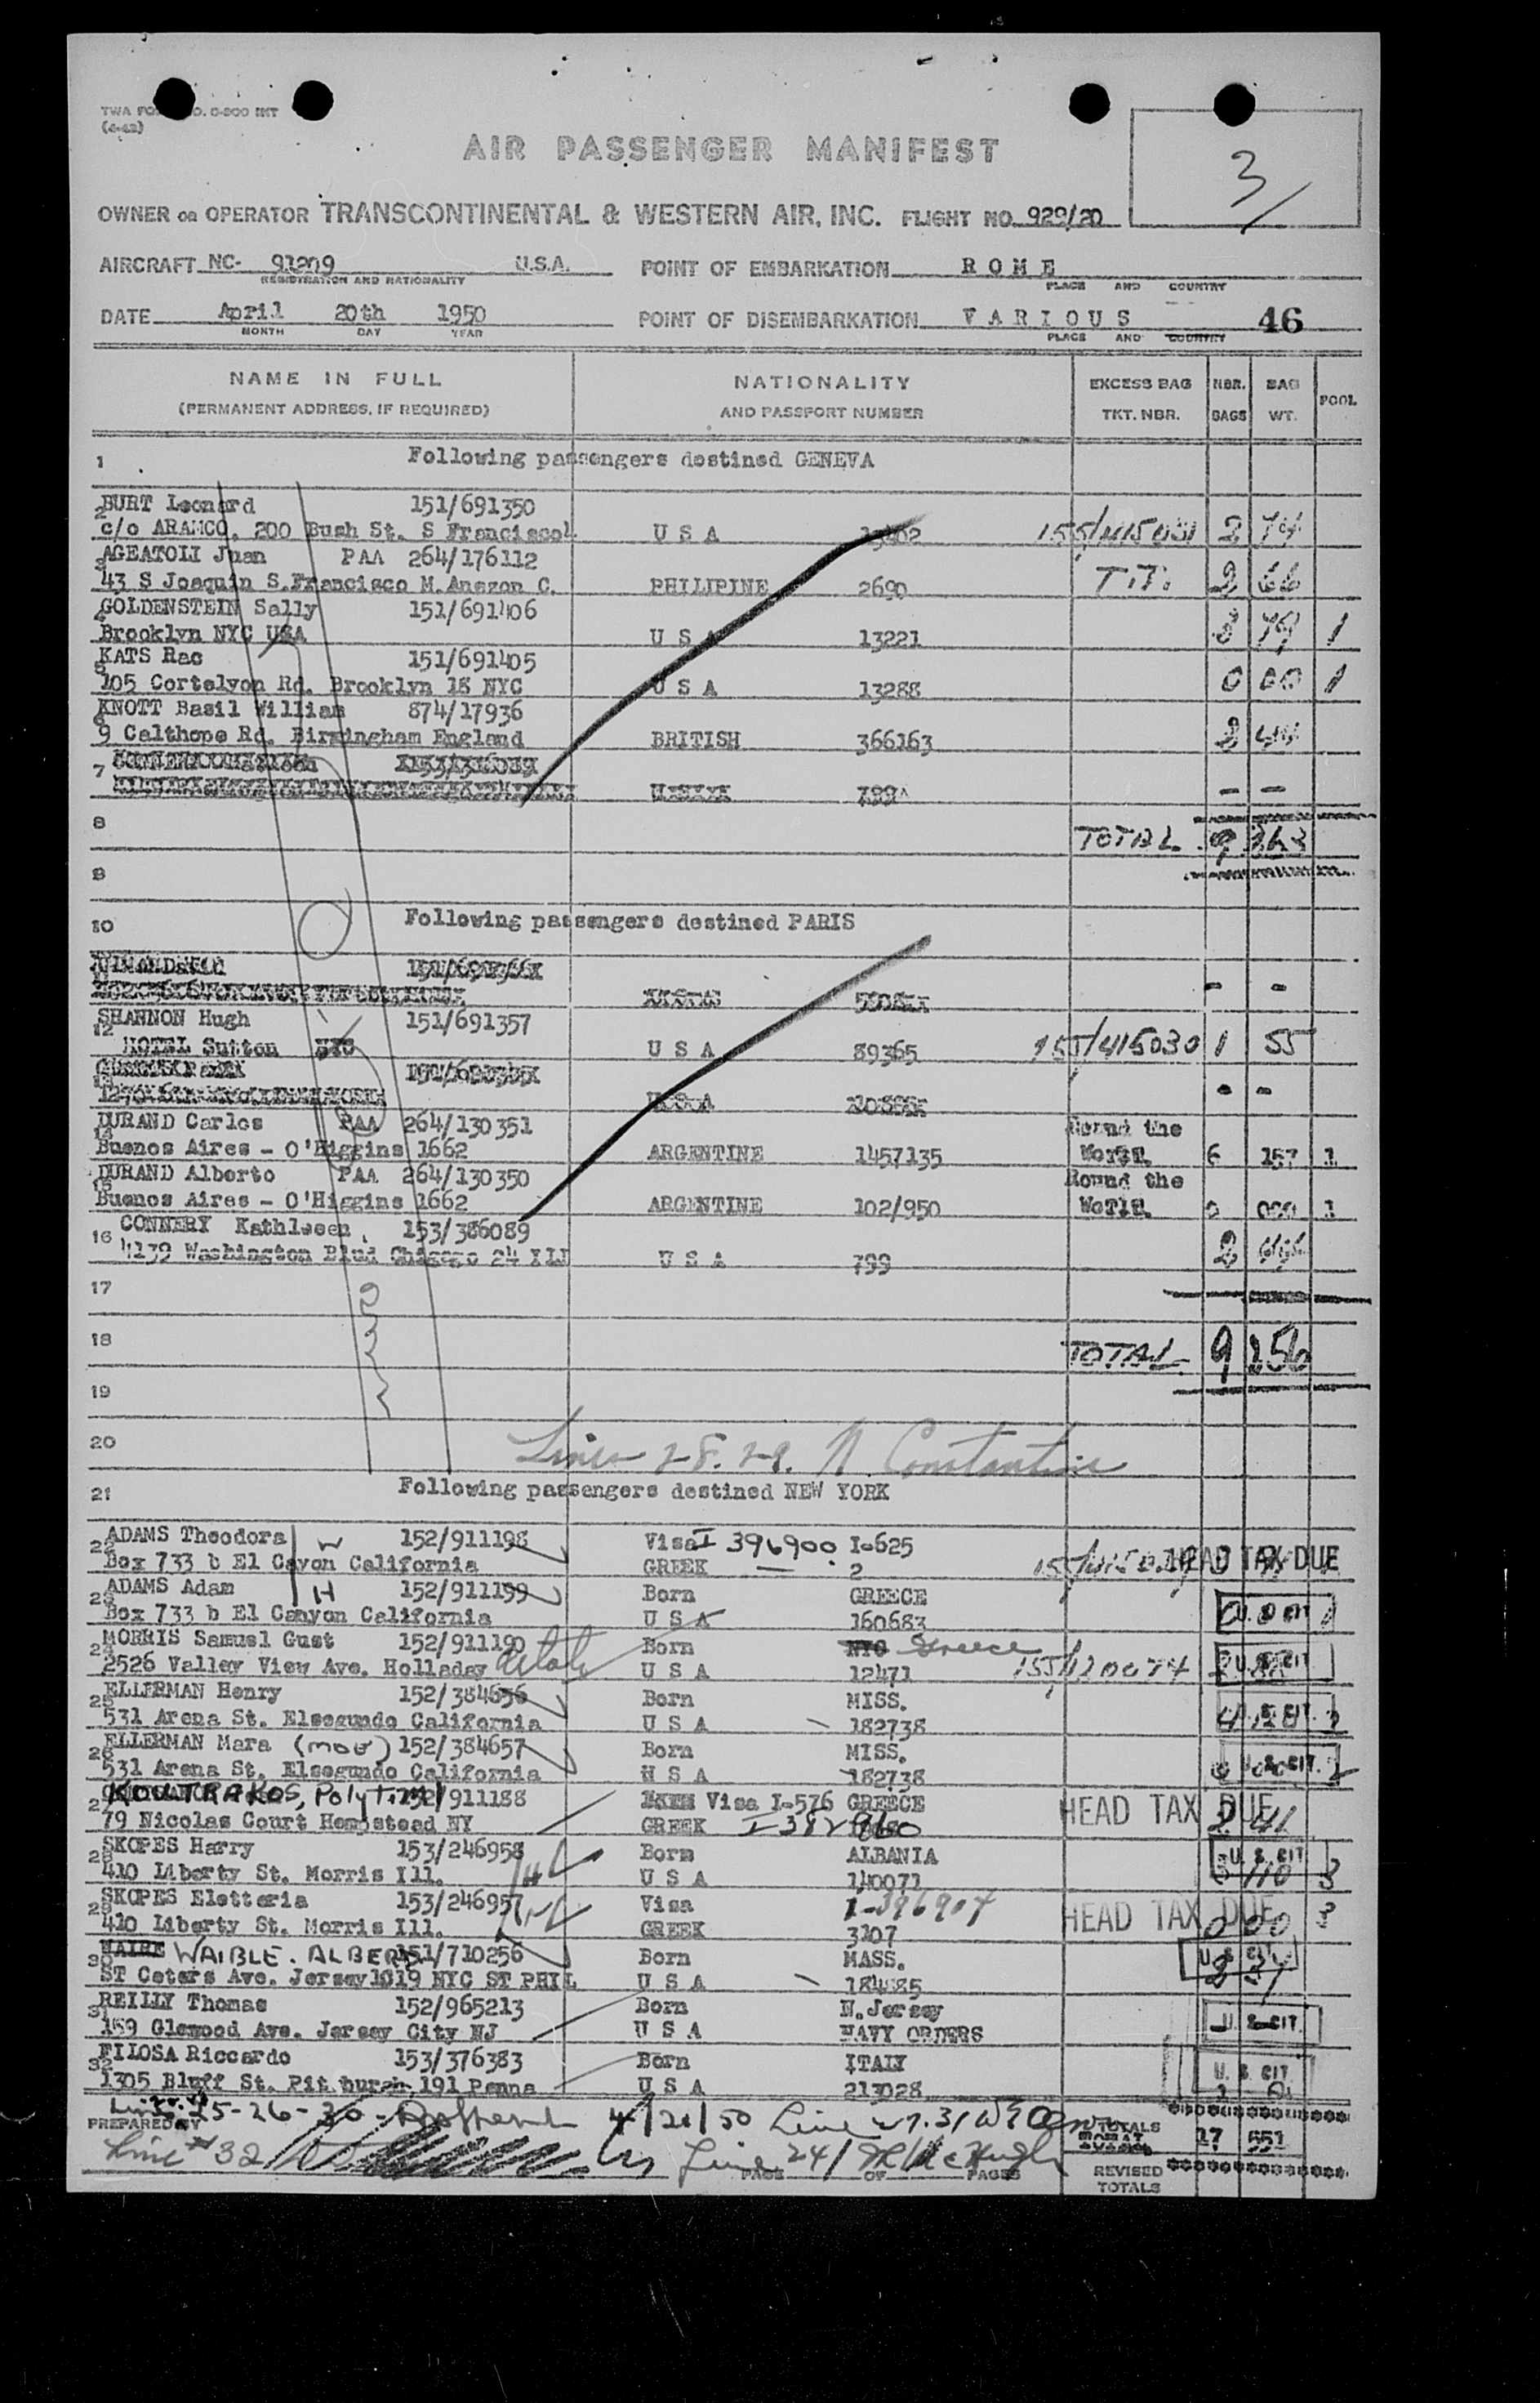 3
AIR PASSENGER MANIFEST
OWNER OR OPERATOR TRANSCONTINENTAL & WESTERN AIR, INC. FLIGHT NO. 929/20
AIRCRAFT NC- 91209 U.S.A. POINT OF EMBARKATION R O M E
REGISTRATION AND NATIONALITY PLACE AND COUNTRY
DATE April 20th 1950 POINT OF DISEMBARKATION V A R I O U S 46
MONTH DAY YEAR PLACE AND COUNTRY
NAME IN FULL NATIONALITY EXCESS BAG NBR. BAG POOL
(PERMANENT ADDRESS, IF REQUIRED) AND PASSPORT NUMBER TKT. NBR. BAGS WT.
1 Following passengers destined GENEVA
2 BURT Leonard 151/691350
c/o ARAMCO, 200 Bush St. S Francisco U S A 2 74
3 AGEATOLI Juan PAA 264/176112
43 S Joaquin S.Francisco M.Anszon C. PHILIPINE 2690 2 66
4 GOLDENSTEIN Sally 151/691406
Brooklyn NYC USA U S A 13221 3 79 1
5 KATS Rac 151/691405
105 Cortelyon Rd. Brooklyn 18 NYC U S A 13288 0 00 1
6 KNOTT Basil William 874/17936
9 Calthope Rd. Birmingham England BRITISH 366163 2 44
7 799 - -
8 TOTAL 9 363
9
10 Following passengers destined PARIS
- -
12 SHANNON Hugh 151/691357
HOTEL Sutton NYC U S A 89365 155/415030 1 55
- -
14 DURAND Carlos PAA 264/130351 Round the
Buenos Aires - O'Higgins 1662 ARGENTINE 1457135 World 6 157 1
15 DURAND Alberto PAA 264/130350 Round the
Buenos Aires - O'Higgins 1662 ARGENTINE 102/950 World 0 000 1
16 CONNERY Kathleeen 153/386089
4139 Washington Blvd Chicago 24 ILL U S A 799 2 44
17
18 TOTAL 9 256
19
20 Lines 28. 29. N. Constantine
21 Following passengers destined NEW YORK
22 ADAMS Theodora W 152/911198 Visa I 396900 I-625
Box 733 b El Cavon California GREEK 2 HEAD TAX DUE
23 ADAMS Adam H 152/911199 Born GREECE
Box 733 b El Canyon California U S A 160683 U. S. CIT. 1
24 MORRIS Samuel Gust 152/911190 Born NYC Greece
2526 Valley View Ave. Holladay Utah U S A 12471 155/420074 U. S. CIT.
25 ELLERMAN Henry 152/384656 Born MISS.
531 Arena St. Elsegundo California U S A 182738 U. S. CIT. 2
26 ELLERMAN Mara (MOE) 152/384657 Born MISS.
531 Arena St. Elsegundo California H S A 182738 U. S. CIT. 2
27 KOUTRAKOS, Polytimi 152/911188 Visa I-576 GREECE
79 Nicolas Court Hempstead NY GREEK I 382960 HEAD TAX DUE 2 41
28 SKOPES Harry 153/246958 H Born ALBANIA
410 Liberty St. Morris Ill. U S A 140071 U. S. CIT. 110 3
29 SKOPES Eletteria 153/246957 W Visa I-396904
410 Liberty St. Morris Ill. GREEK 3107 HEAD TAX DUE 0 00 3
30 WAIBLE. ALBERT 151/710256 Born MASS.
ST Ceters Ave. Jersey 1019 NYC ST PHIL U S A U. S. CIT. 2 37
31 REILLY Thomas 152/965213 Born N.Jersey
159 Glewood Ave. Jersey City NJ U S A NAVY ORDERS U. S. CIT.
32 FILOSA Riccardo 153/376383 Born ITALY
1305 Bluff St. Pitburgh 191 Penna U S A 213028 U. S. CIT.
25-26-30- 4/21/50 Line 27.31
PREPARED BY TOTALS 17 551
Line #32 Line 24/ McHugh
PAGE OF PAGES REVISED TOTALS